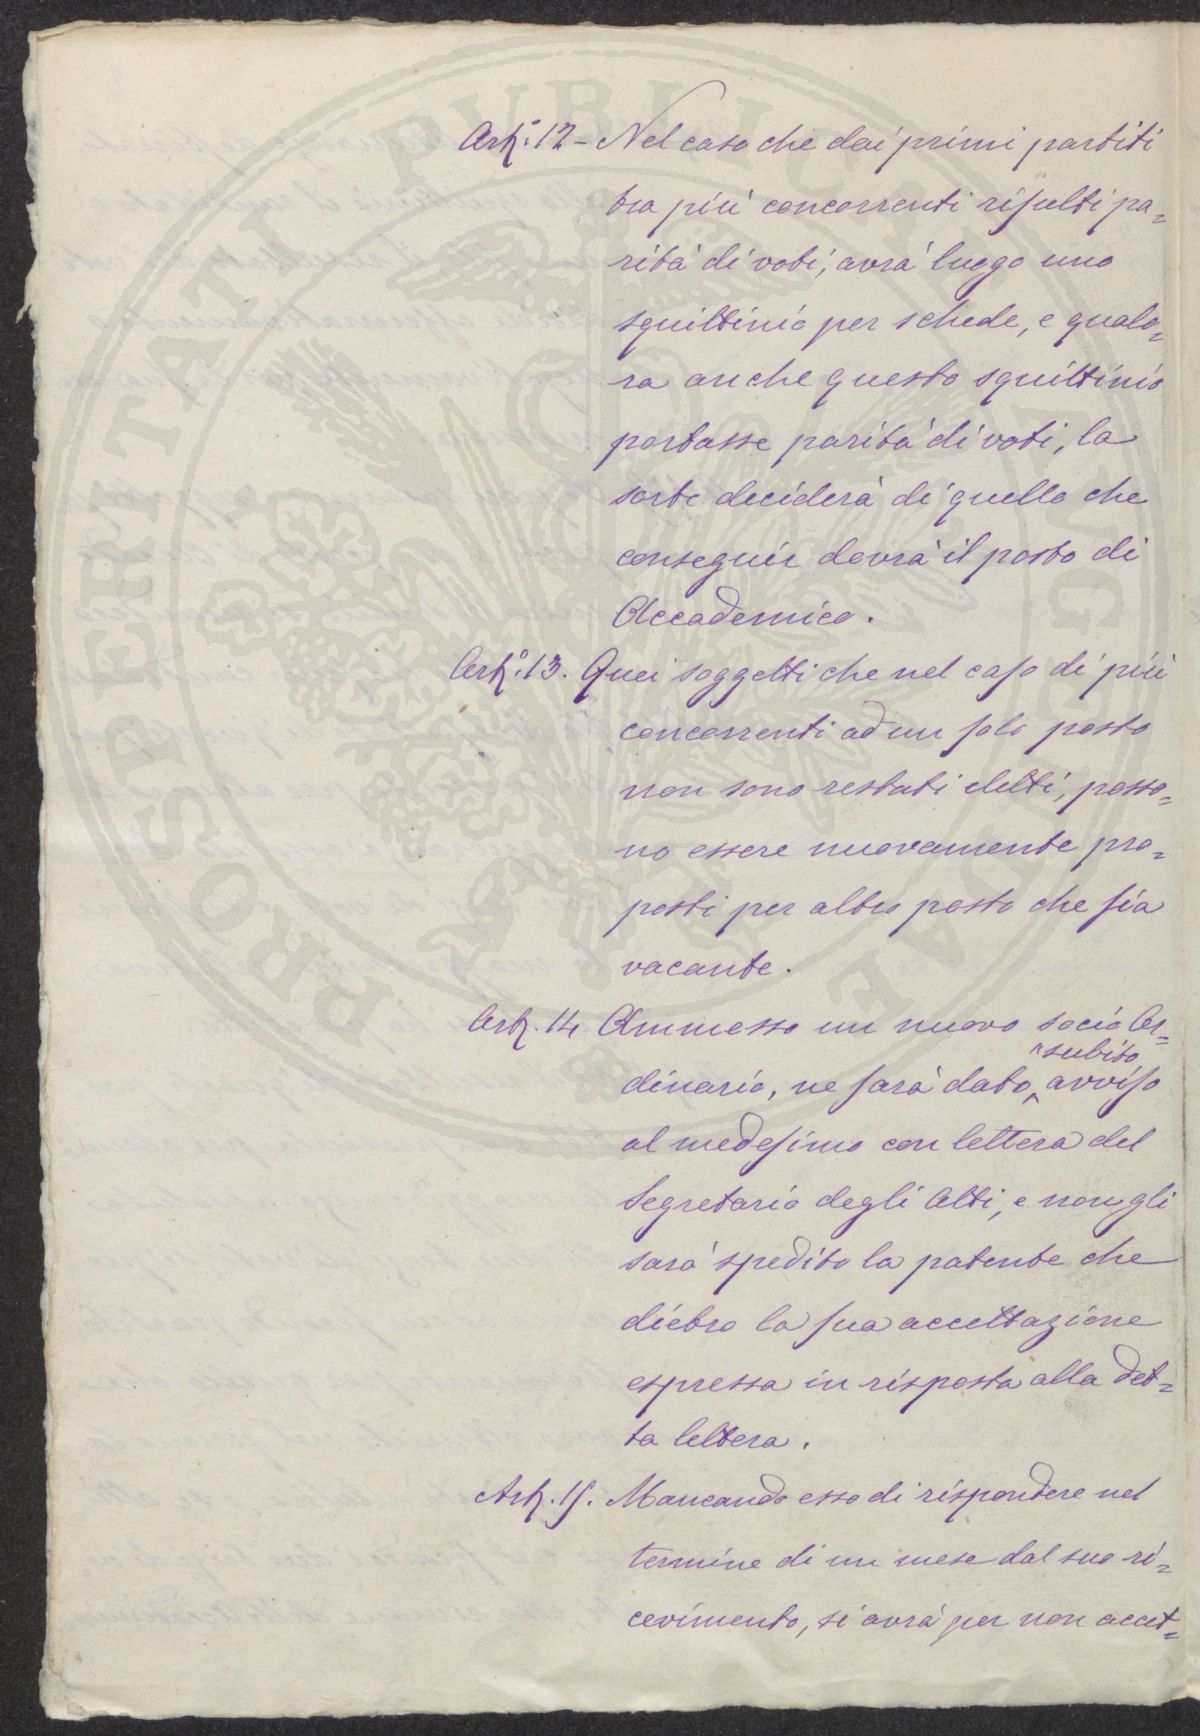 Art.° 12 - Nel caso che dai primi partiti
tra più concorrenti risulti pa=
rità di voti, avrà luogo uno
squittinio per schede, e qualo=
ra anche questo squittinio
portasse parità di voti, la
sorte deciderà di quello che
conseguir dovrà il posto di
Accademico.
Art.° 13. Quei soggetti che nel caso di più
concorrenti ad un solo posto
non sono restati eletti, posso=
no essere nuovamente pro=
posti per altro posto che sia
vacante.
Art. 14 Ammesso un nuovo socio Or=
subito
dinario, ne sarà dato avviso
al medesimo con lettera del
Segretario degli Atti, e non gli
sarà spedito la patente che
dietro la sua accettazione
espressa in risposta alla det=
ta lettera.
Art. 15. Mancando esso di rispondere nel
termine di un mese dal suo ri=
cevimento, si avrà per non accet=
PROSPERITATI PUBLICAE AUGENDAE